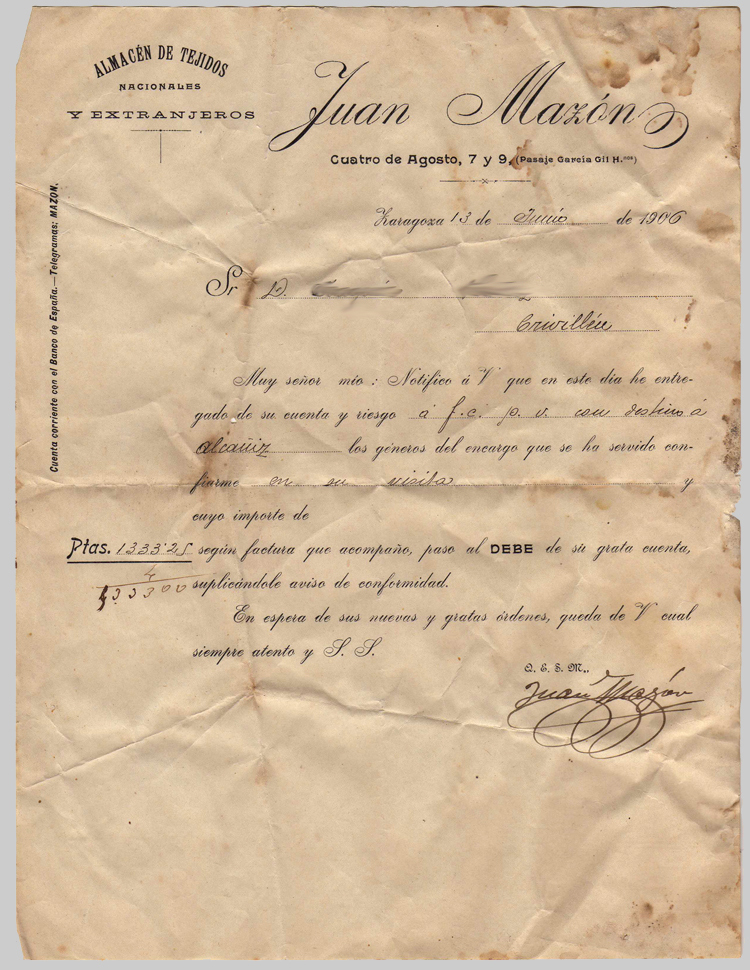 ALMACÉN DE TEJIDOS
NACIONALES
Y EXTRANJEROS
Juan Mazón
Cuatro de Agosto, 7 y 9, (Pasaje García Gil H.nos)
Zaragoza 13 de Junio de 1906
Sr D.
Crivillén
Cuenta corriente con el Banco de España.—Telegramas: MAZON.
Muy señor mío: Notifico á V que en este día he entre-
gado de su cuenta y riesgo á f.c. p.v. con destino á
Alcañiz los géneros del encargo que se ha servido con-
fiarme en su visita y
cuyo importe de
Ptas. 1333'25 según factura que acompaño, paso al DEBE de su grata cuenta,
suplicándole aviso de conformidad.
En espera de sus nuevas y gratas órdenes, queda de V cual
siempre atento y S. S.
Q. E. S. M.,
Juan Mazón